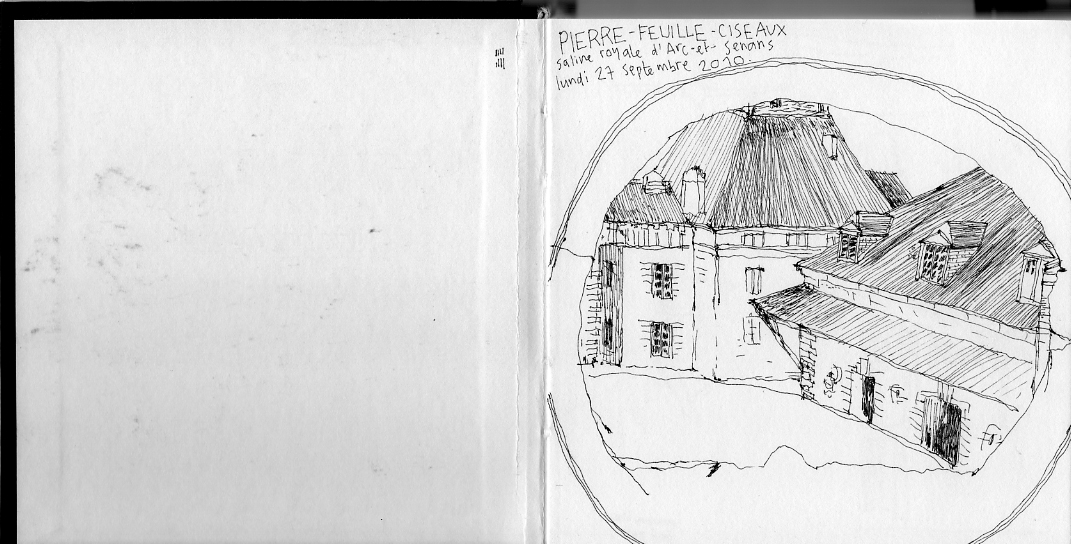 PIERRE-FEUILLE-CISEAUX
saline royale d'Arc-et-Senans
lundi 27 septembre 2010.